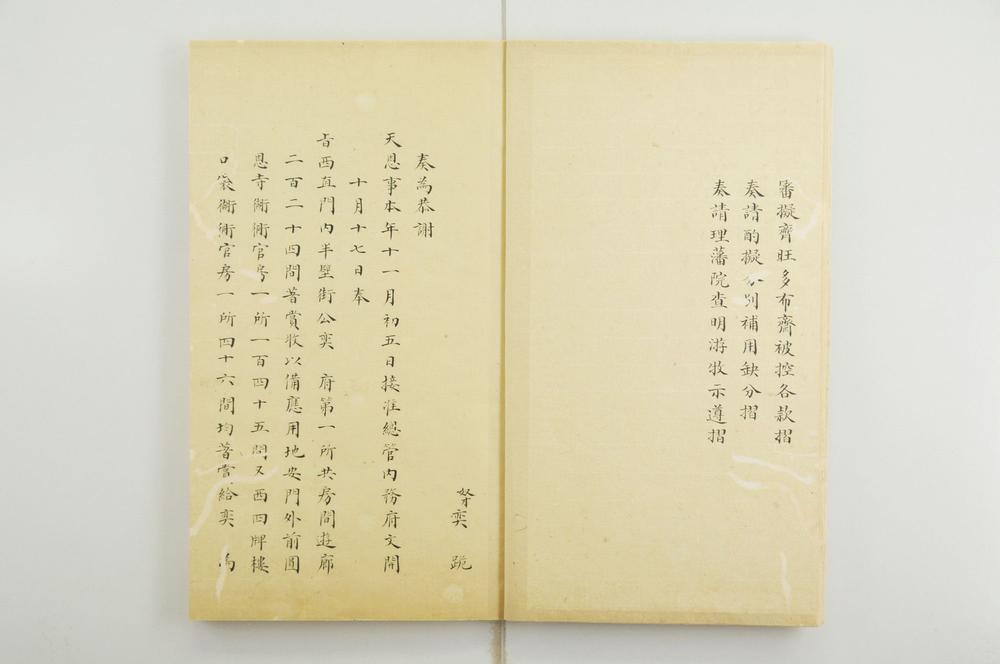 審擬齊旺多布齋被控各款摺
奏請酌擬分別補用缺分摺
奏請理藩院查明游牧示遵摺
奴才奕 跪
奏為恭謝
天恩事本年十一月初五日接准總管內務府文開
十月十七日奉
旨西直門內半壁街公奕 府第一所共房間遊廊
二百二十四間著賞收以備應用地安門外前圓
恩寺衚衕官房一所一百四十五間又西四牌樓
口袋衚衕官房一所四十六間均著賞給奕 為